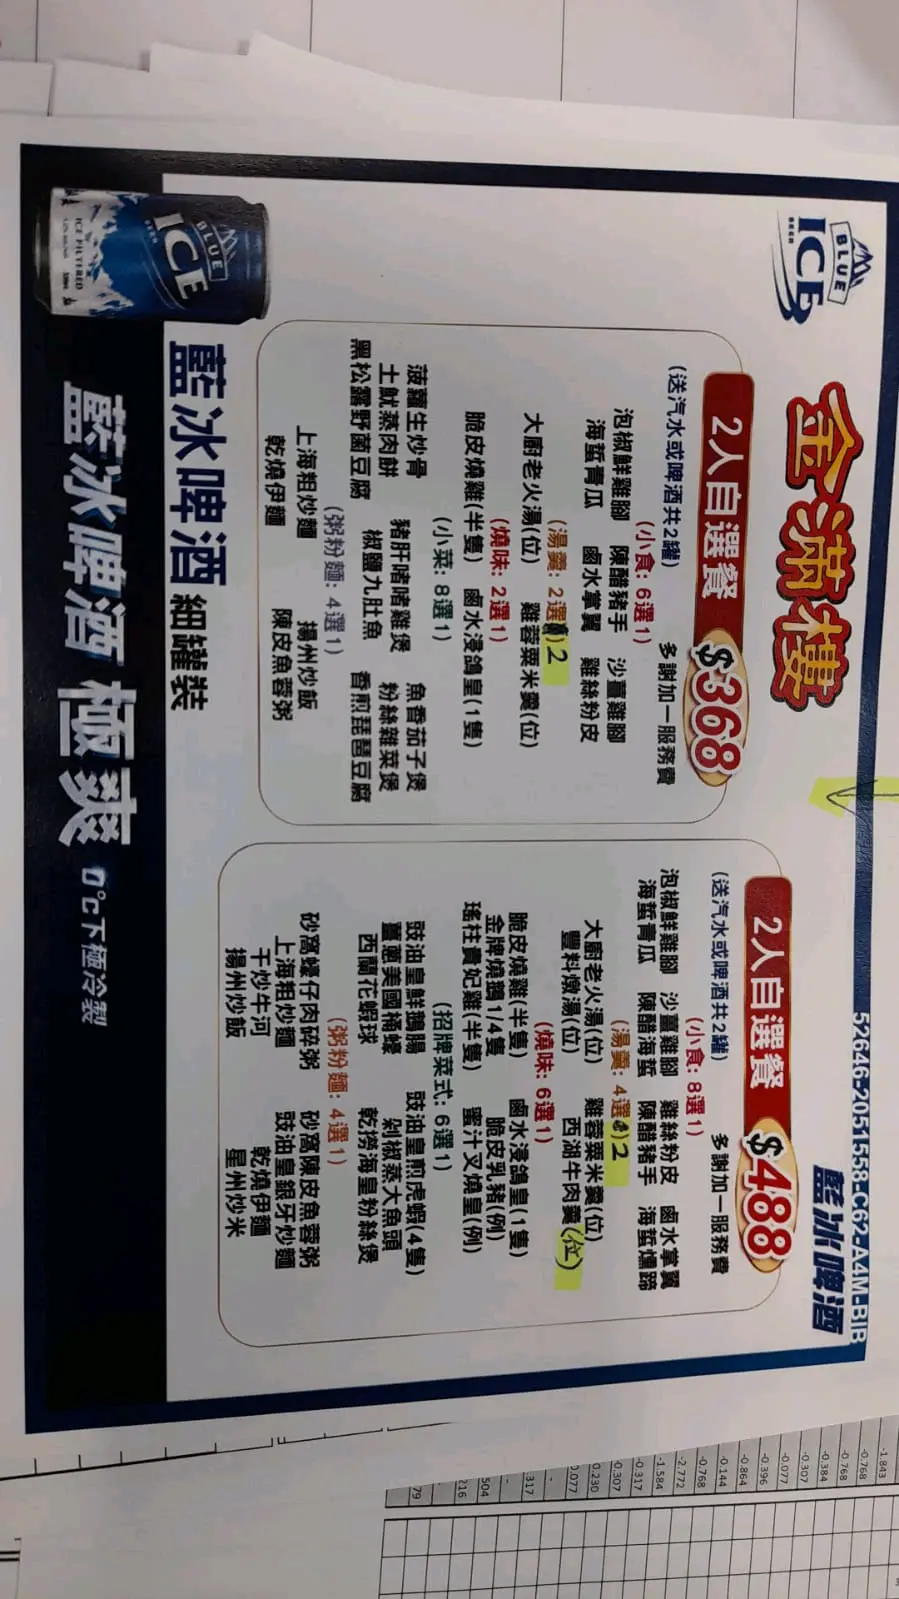 52646-2051558-C62-A4M-BIB
BLUE
ICE
BEER
金滿樓
藍冰啤酒
2人自選餐 $368
(送汽水或啤酒共2罐) 多謝加一服務費
(小食: 6選1)
泡椒鮮雞腳 陳醋豬手 沙薑雞腳
海蜇青瓜 鹵水掌翼 雞絲粉皮
(湯羹: 2選)2
大廚老火湯(位) 雞蓉粟米羹(位)
(燒味: 2選1)
脆皮燒雞(半隻) 鹵水浸鴿皇(1隻)
(小菜: 8選1)
菠蘿生炒骨 豬肝啫啫雞煲 魚香茄子煲
土魷蒸肉餅 椒鹽九肚魚 粉絲雜菜煲
黑松露野菌豆腐 香煎琵琶豆腐
(粥粉麵: 4選1)
上海粗炒麵 揚州炒飯
乾燒伊麵 陳皮魚蓉粥
2人自選餐 $488
(送汽水或啤酒共2罐) 多謝加一服務費
(小食: 8選1)
泡椒鮮雞腳 沙薑雞腳 雞絲粉皮 鹵水掌翼
海蜇青瓜 陳醋海蜇 陳醋豬手 海蜇燻蹄
(湯羹: 4選)2
大廚老火湯(位) 雞蓉粟米羹(位)
豐料燉湯(位) 西湖牛肉羹(位)
(燒味: 6選1)
脆皮燒雞(半隻) 鹵水浸鴿皇(1隻)
金牌燒鵝1/4隻 脆皮乳豬(例)
瑤柱貴妃雞(半隻) 蜜汁叉燒皇(例)
(招牌菜式: 6選1)
豉油皇鮮鵝腸 豉油皇煎虎蝦(4隻)
薑蔥美國桶蠔 剁椒蒸大魚頭
西蘭花蝦球 乾撈海皇粉絲煲
(粥粉麵: 4選1)
砂窩蠔仔肉碎粥 砂窩陳皮魚蓉粥
上海粗炒麵 豉油皇銀牙炒麵
干炒牛河 乾燒伊麵
揚州炒飯 星州炒米
BLUE
ICE
BEER
ICE FILTERED
藍冰啤酒 細罐裝
藍冰啤酒 極爽 0°c下極冷製
-1.843
-0.768
-0.768
-0.384
-0.307
-0.077
-0.396
-0.864
-0.144
-0.768
-2.772
-1.584
-0.317
-0.307
0.230
0.077
-
.317
-
504
216
79